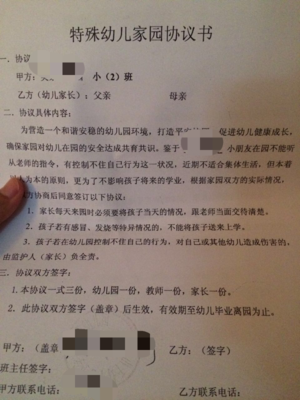 特殊幼儿家园协议书
一．协议
甲方：小（2）班
乙方（幼儿家长）：父亲 母亲
二．协议具体内容：
为营造一个和谐安稳的幼儿园环境，打造平 促进幼儿健康成长，
确保家园对幼儿在园的安全达成共育共识。鉴于 小朋友在园不能听
从老师的指令，有控制不住自己行为这一状况，近期不适合集体生活，但本着
为本的原则，更为了不影响孩子将来的学业，根据家园双方的实际情况，
协商后同意签订以下协议：
1．家长每天来园时必须要将孩子当天的情况，跟老师当面交待清楚。
2．若孩子有感冒、发烧等特异情况的，不能将孩子送来上学。
3．孩子若在幼儿园控制不住自己的行为，对自己或其他幼儿造成伤害的，
由监护人（家长）负全责。
三．协议双方签字：
1.本协议一式三份，幼儿园一份，教师一份，家长一份。
2．此协议双方签字（盖章）后生效，有效期至幼儿毕业离园为止。
甲方：（盖章 乙方：（签字）
班主任签字：
甲方联系电话： 乙方联系电话：